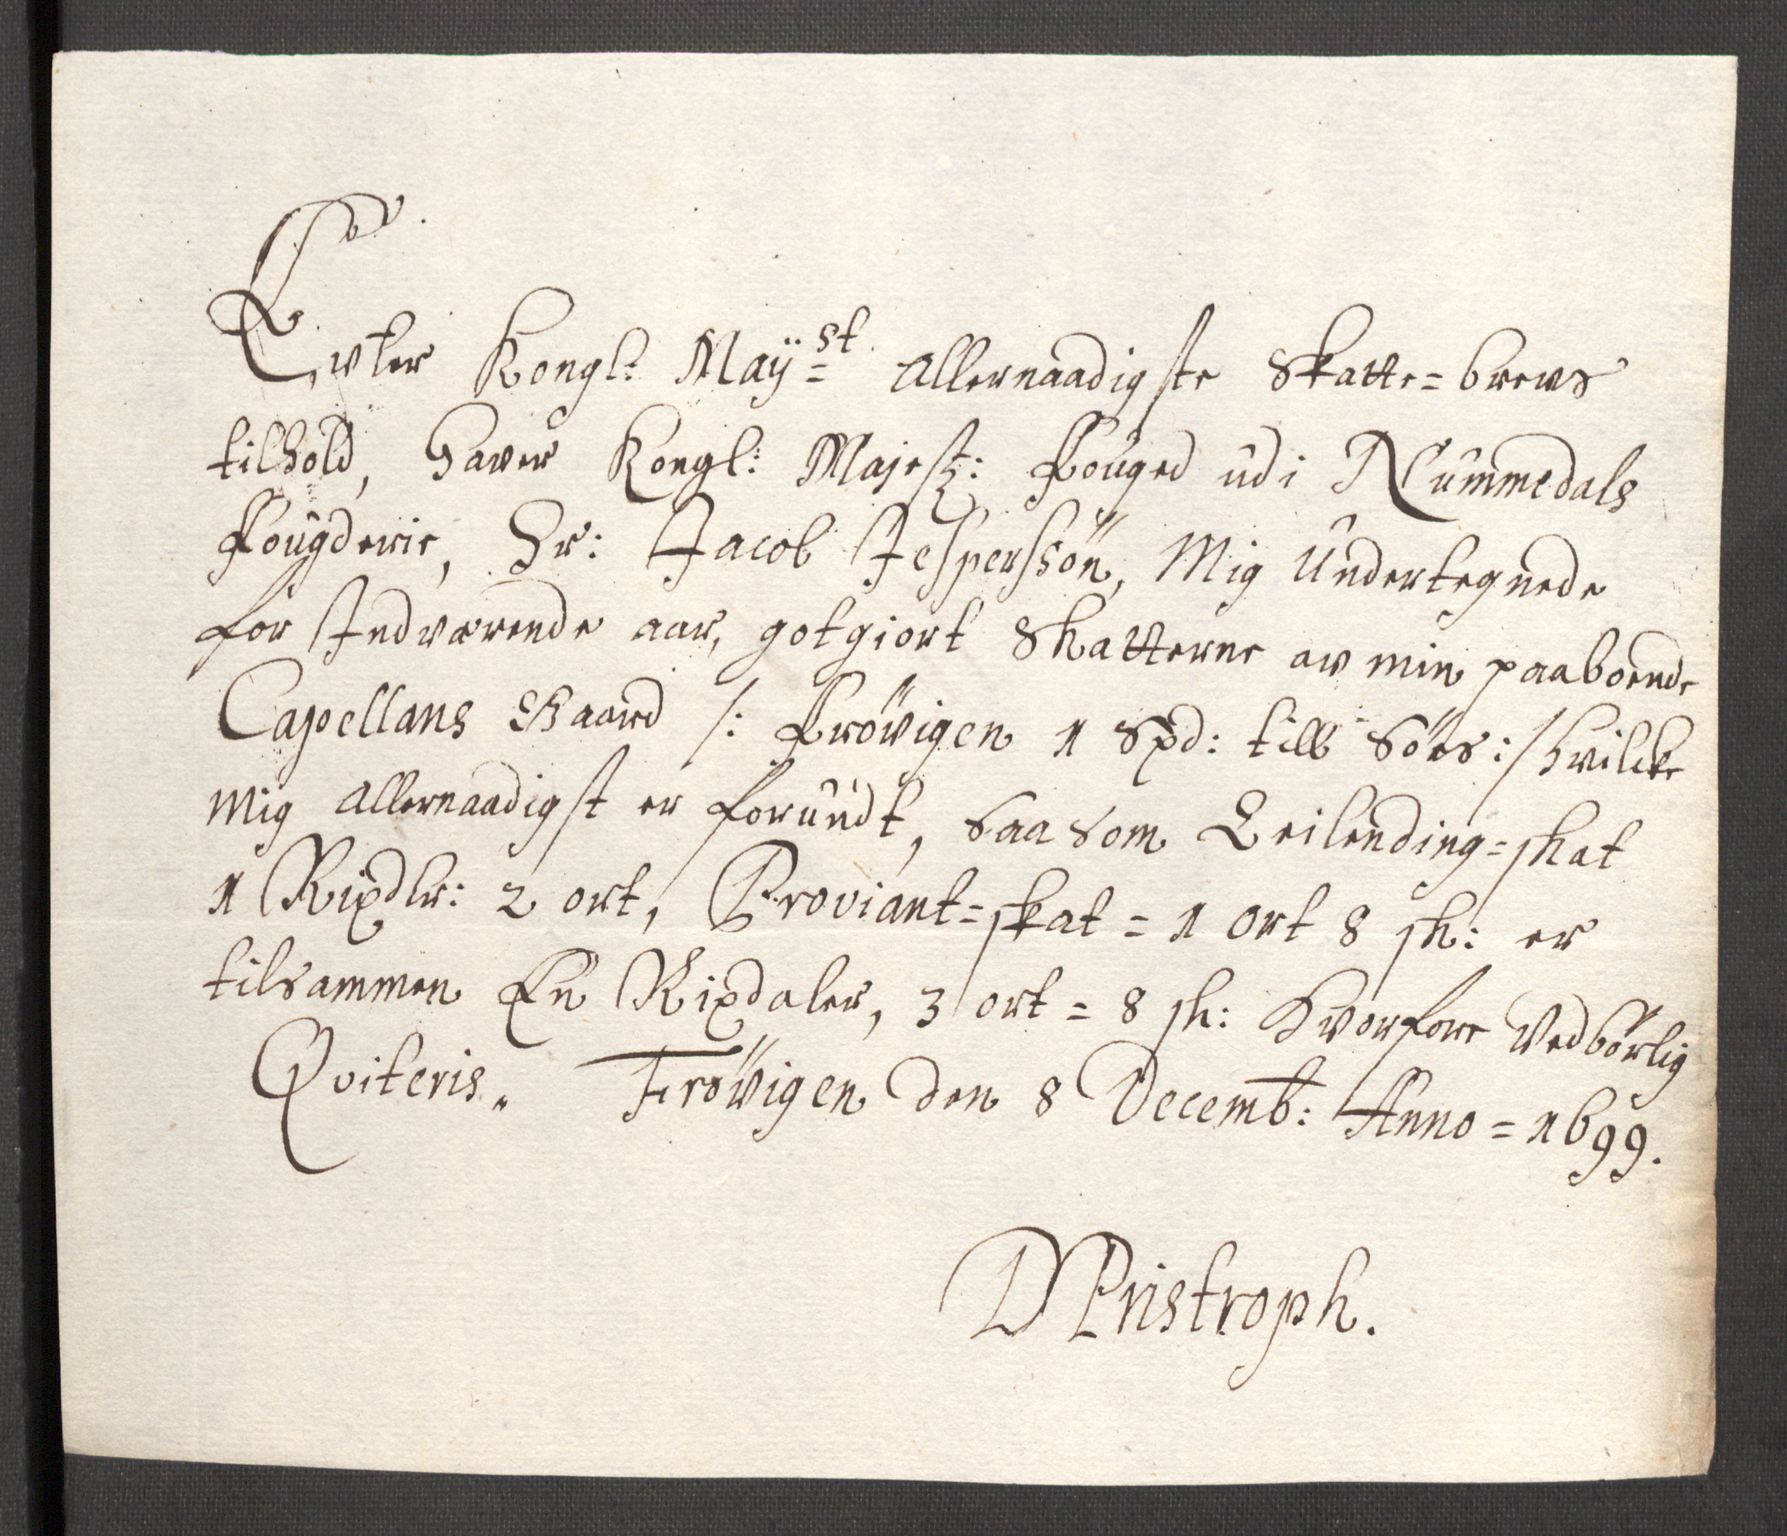 Evter Kongl: Maÿ=st allernaadigste Skatte=brevs
tilhold, haver Kongl: Majest: Fouged udi Nummedals
Fougderie, Hr: Jacob Jesperssön, Mig Undertegnede
for Indværende aar, gotgiort Skatterne av min paaboende
Capellans Gaard /: Frövigen 1 Spd: till Söes :/ hvilcke
mig allernaadigst er forundt, saasom Leilending=skat
1 Rixdlr: 2 ort, Proviant=skat = 1 ort 8 sk: er
tilsammen En Rixdaler, 3 ort = 8 sk: Hvorfore Vedbörlig
Qviteris. Frövigen den 8 Decemb: Anno = 1699.
D Pristroph.